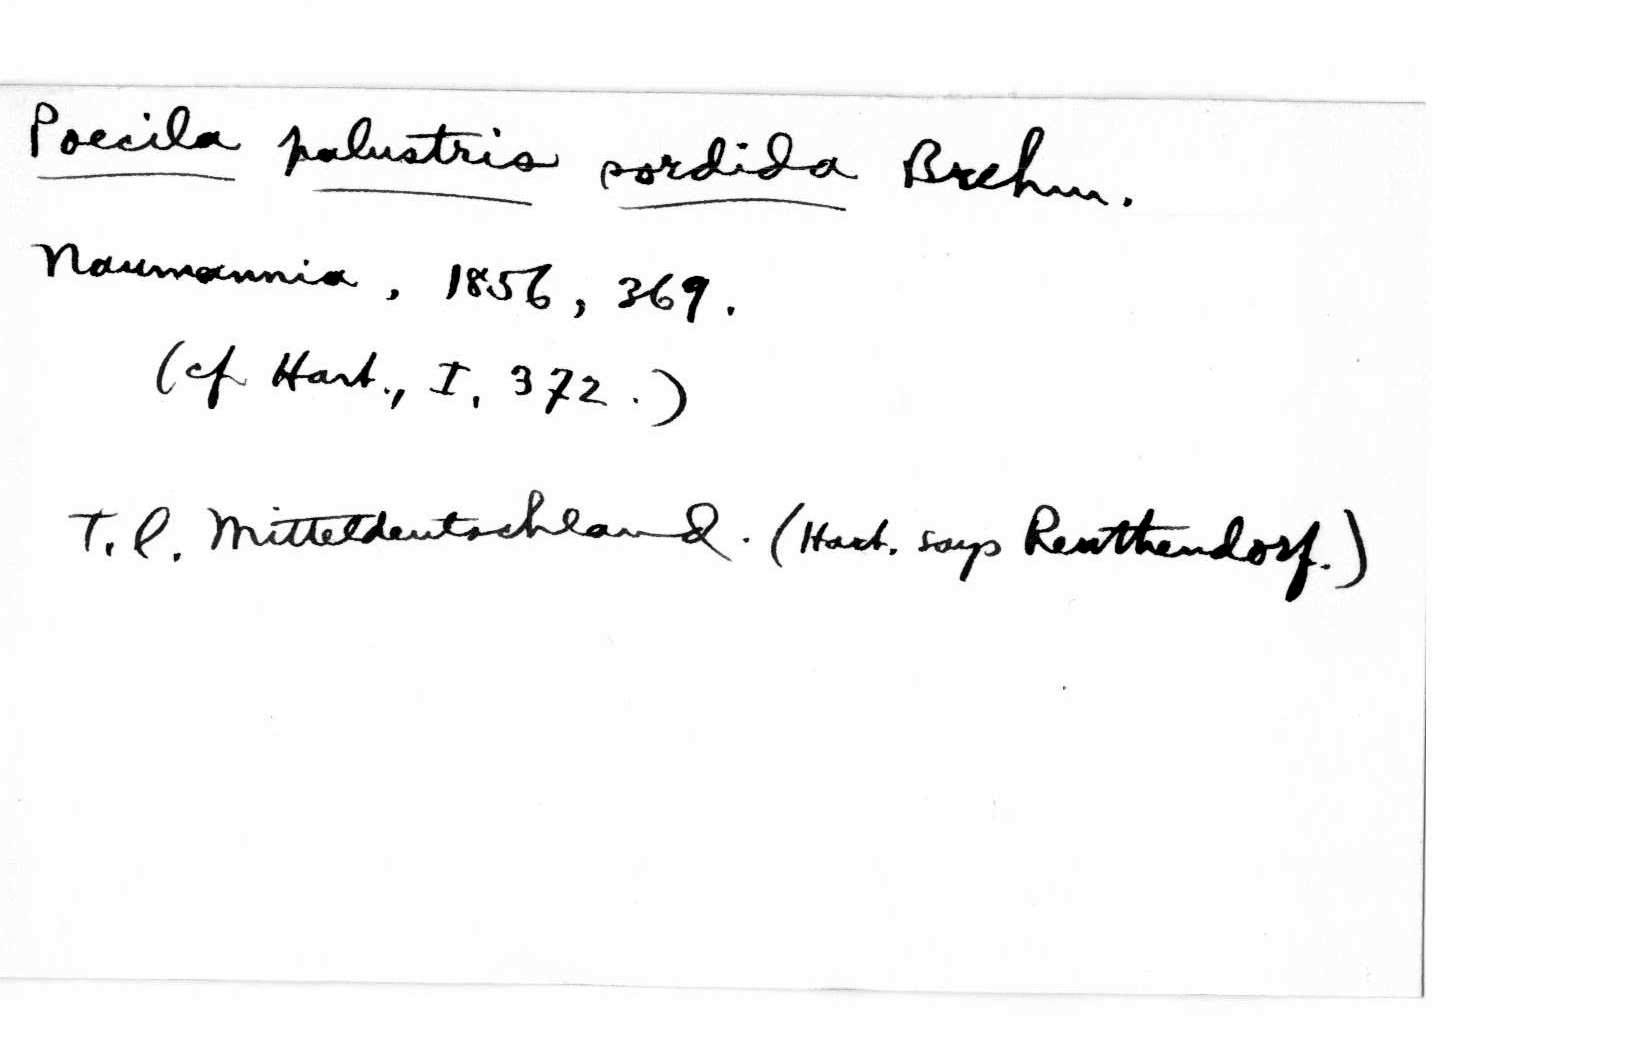 Poecila palustris sordida Brehm.
Naumannia, 1856, 369.
(cf Hart., I, 372.)
T.l. Mitteldeutschland. (Hart. says Renthendorf.)